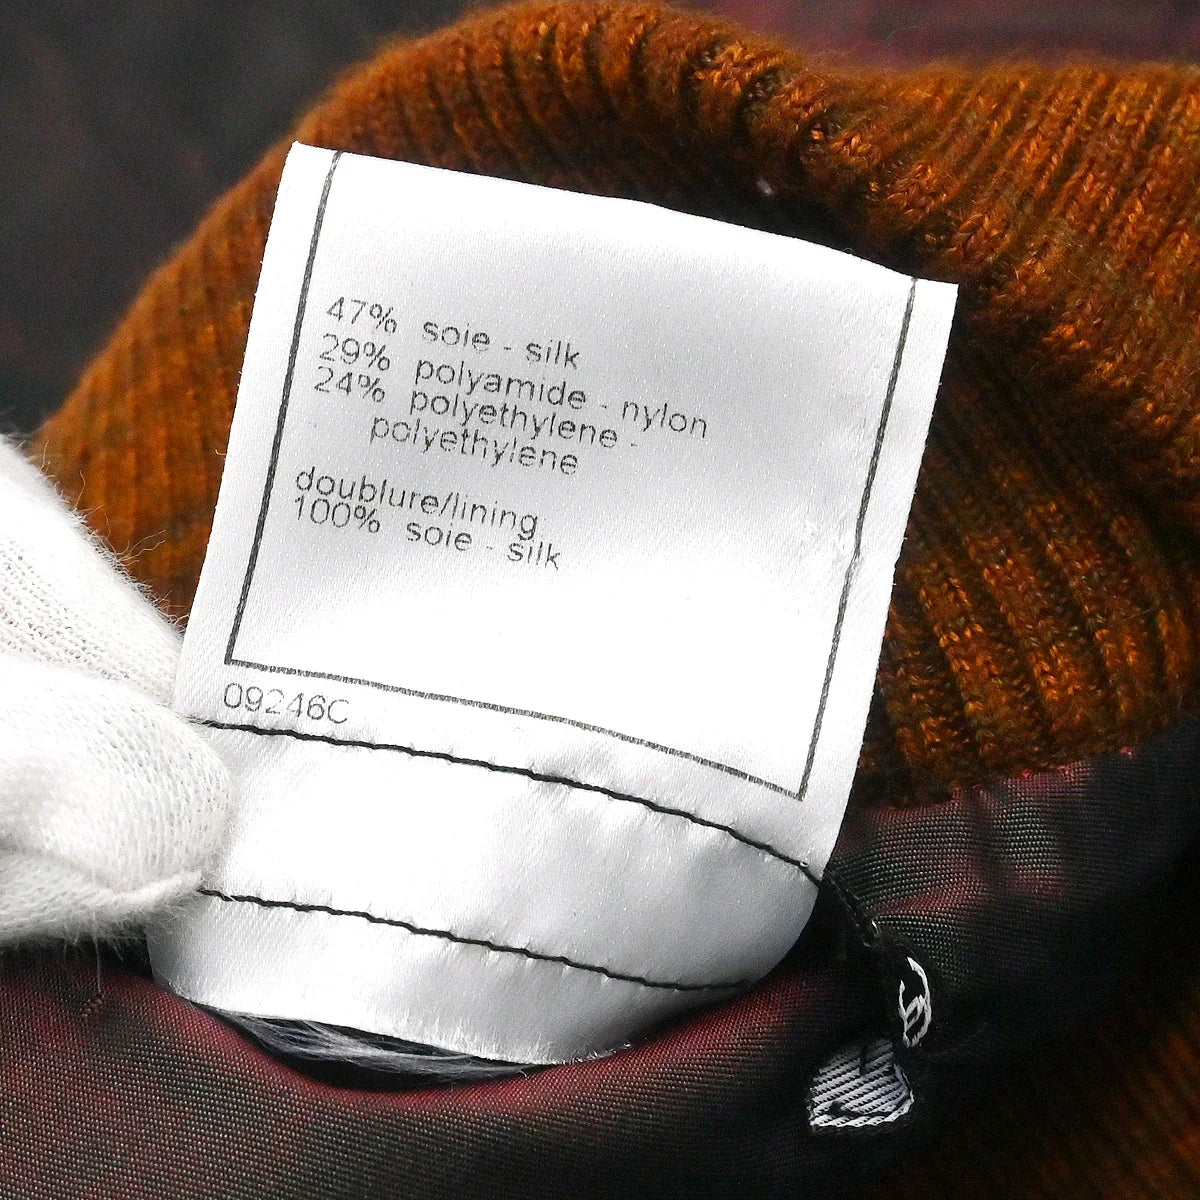 47% soie - silk
29% polyamide - nylon
24% polyethylene -
polyethylene
doublure/lining
100% soie - silk
09246C